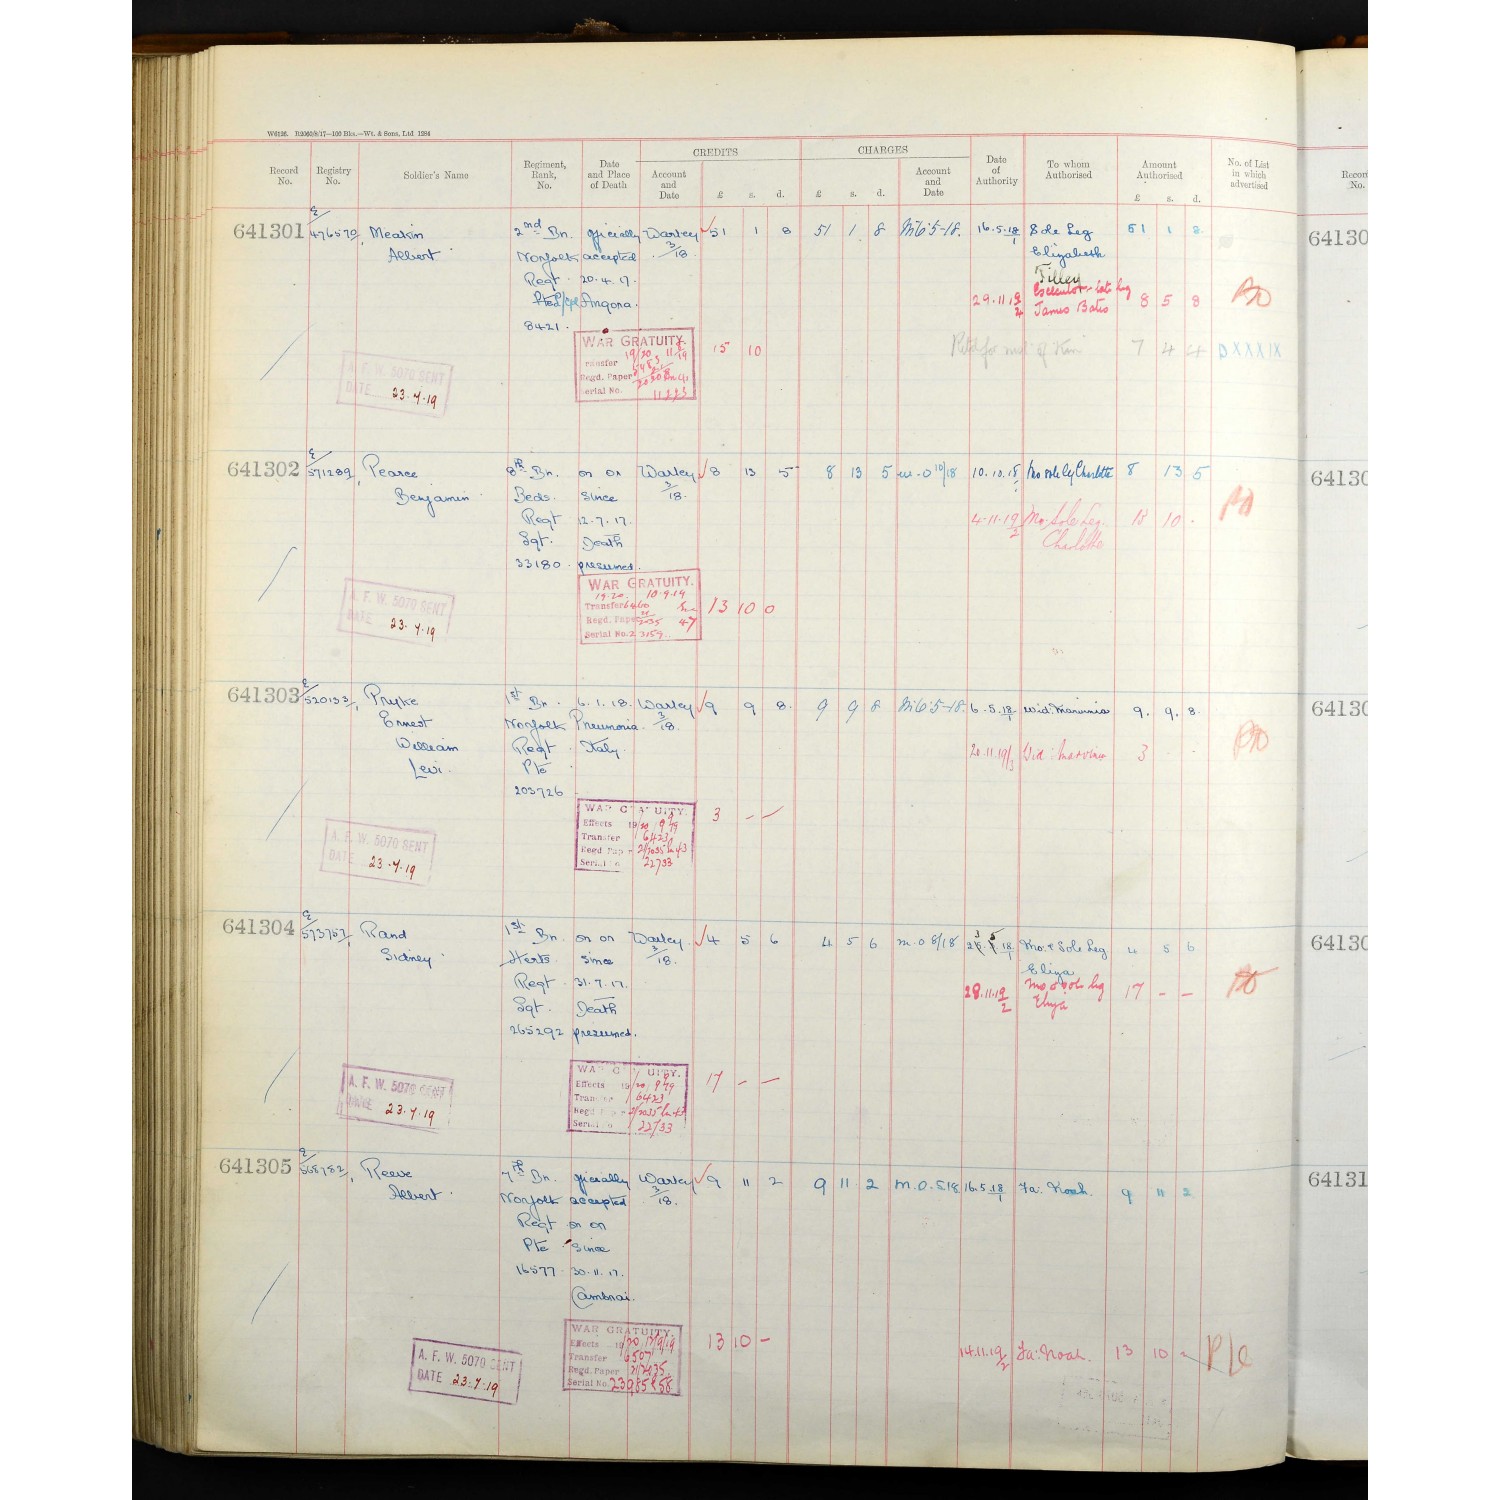 W6126. R2060/8/17—100 Bks.—Wt. & Sons, Ltd 1284
CREDITS CHARGES
Record No. Registry No. Soldier's Name Regiment, Rank, No. Date and Place of Death Account and Date £ s. d. £ s. d. Account and Date Date of Authority To whom Authorised Amount Authorised £ s. d. No. of List in which advertised
Record No.
641301 E/476570 Meakin 2nd Bn. officially Warley 51 1 8 51 1 8 M'6'5-18. 16.5.18/1 Sole Leg 51 1 8
Albert Norfolk accepted 3/18. Elizabeth
Regt 20.4.17. Tilley
Pte L/Cpl Angora. 29.11.19/2 Executor late leg James Bates 8 5 8
8421.
WAR GRATUITY. 15 10
19/20
Transfer
Regd. Paper
Serial No. 11223
of Kin 7 4 4 DXXXIX
A. F. W. 5070 SENT
DATE 23.4.19
641302 E/571289 Pearce 8th Bn. on or Warley 8 13 5 8 13 5 m.o 10/18 10.10.18/1 Mo sole leg Charlotte 8 13 5
Benjamin Beds. since 3/18.
Regt 12.7.17. 4.11.19/2 Mo. Sole Leg. 13 10 .
Sgt. Death Charlotte
33180 presumed.
WAR GRATUITY.
19.20. 10.9.19
Transfer 6460 13 10 0
Regd. Paper 2035 47
Serial No. 23159
A. F. W. 5070 SENT
DATE 23.4.19
641303 E/520133 Pryke 1st Bn. 6.1.18. Warley 9 9 8. 9 9 8 M'6'5-18. 6.5.18/1 Wid: Marvinia 9. 9. 8.
Ernest Norfolk Pneumonia 3/18.
William Regt Italy. 20.11.19/3 Wid: Marvina 3 . .
Levi. Pte
203726
WAR GRATUITY. 3 - -
Effects 19/20 9/9/19
Transfer 6423
Regd Paper 2/2035
Serial No 22733
A. F. W. 5070 SENT
DATE 23.4.19
641304 E/573757 Rand 1st Bn. on or Warley. 4 5 6 4 5 6 m.o 8/18 18/1 Mo: & Sole Leg 4 5 6
Sidney Herts. since 3/18. Eliza
Regt 31.7.17. 28.11.19/2 mo & sole leg Eliza 17 - -
Sgt. Death
265292 presumed.
WAR GRATUITY. 17 - -
Effects 19/20 9/9/19
Transfer 6423
Regd Paper 2/2035
Serial No 22733
A. F. W. 5070 SENT
DATE 23.4.19
641305 E/568782 Reeve 7th Bn. officially Warley 9 11 2 9 11 2 m.o.5.18 16.5.18/1 Fa: Noah. 9 11 2
Albert Norfolk accepted 3/18.
Regt on or
Pte since
16577 30.11.17.
Cambrai.
WAR GRATUITY. 13 10 - 14.11.19/2 Fa: Noah. 13 10 -
Effects 19/20 17/9/19
Transfer 6507
Regd. Paper 2/2435
Serial No. 23985
A. F. W. 5070 SENT
DATE 23.4.19
64130
64130
64130
64130
64131